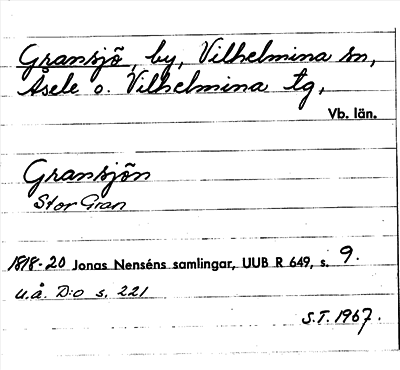 Gransjö, by, Vilhelmina sn,
Åsele o. Vilhelmina tg,
Vb. län.
Gransjön
Stor Gran
1818-20 Jonas Nenséns samlingar, UUB R 649, s. 9.
u.å. D:o s. 221
S.T. 1967.